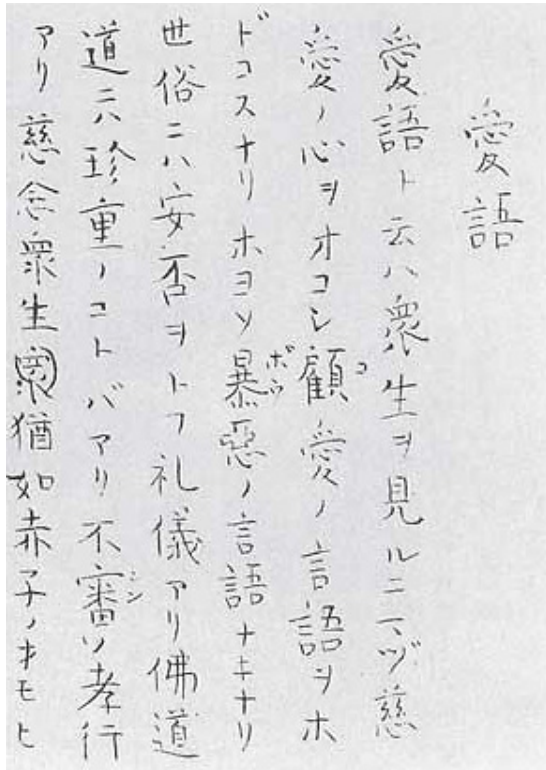 愛語
愛語ト云ハ衆生ヲ見ルニマヅ慈
愛ノ心ヲオコシ顧愛ノ言語ヲホ
ドコスナリホヨソ暴悪ノ言語ナキナリ
世俗ニハ安否ヲトフ礼儀アリ佛道
道ニハ珍重ノコトバアリ不審ノ孝行
アリ慈念衆生猶如赤子ノオモヒ